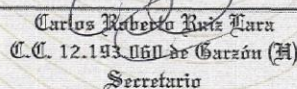 Carlos Roberto Ruiz Lara
C.C. 12.193.060 de Garzón (H)
Secretario